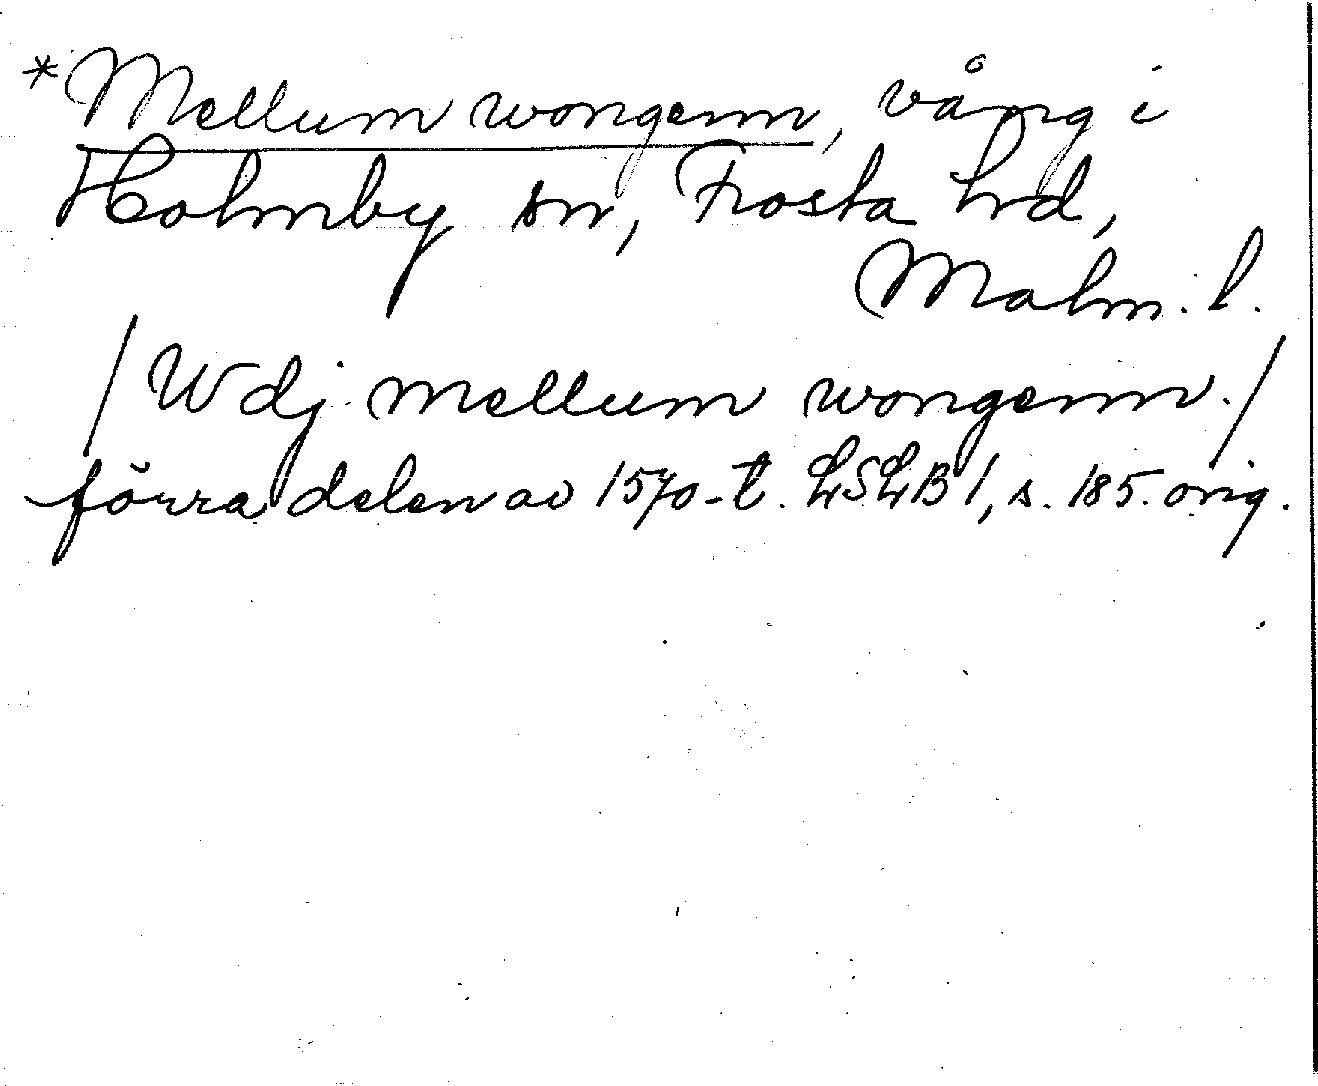 *Mellum wongenn, vång i
Holmby sn, Frosta hd,
Malm. l.
/Wdj mellum wongenn./
förra delen av 1570-t. LSLB 1, s. 185. orig.